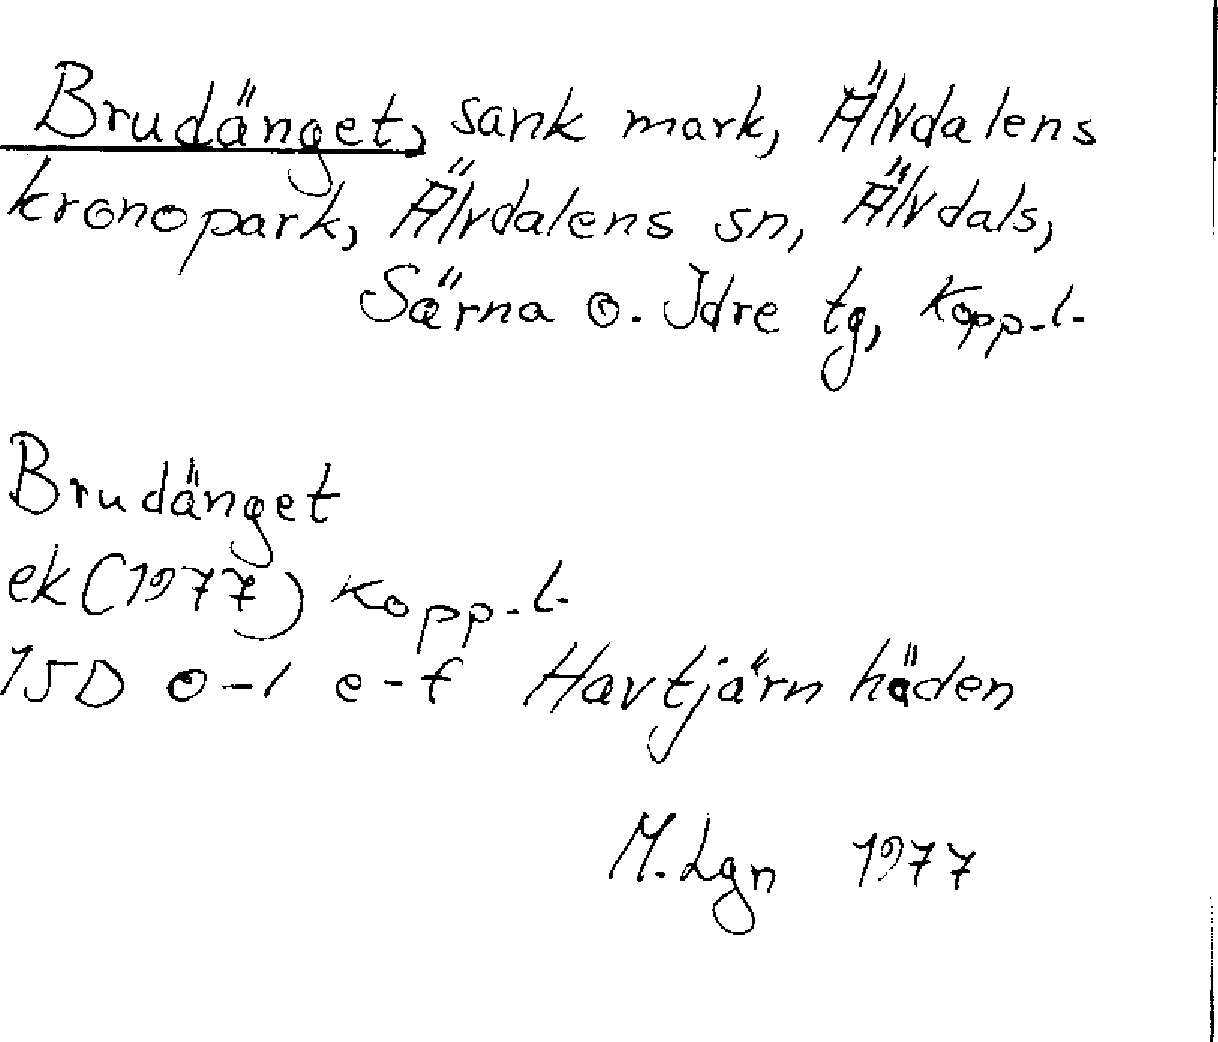 Brudänget, sank mark, Älvdalens
kronopark, Älvdalens sn, Älvdals,
Särna o. Idre tg, Kopp-l-
Brudänget
ek (1977) Kopp-l-
15D 0-1 e-f Havtjärn häden
M. Lgn 1977